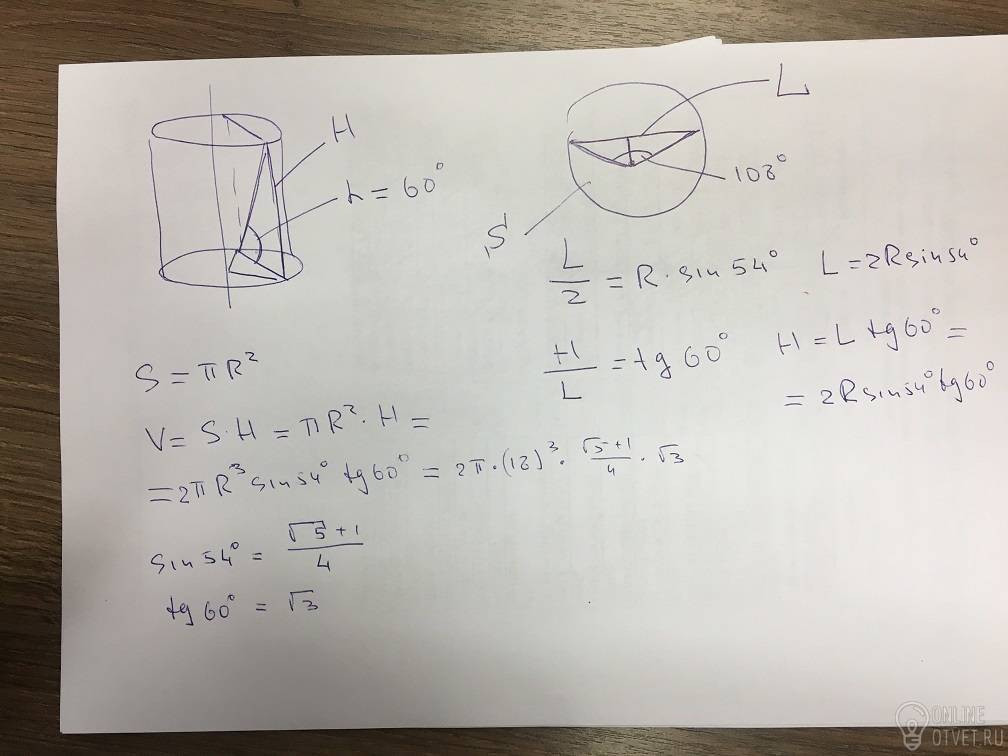 H
L = 60°
L
108°
S
L/2 = R · sin 54° L = 2R sin 54°
H/L = tg 60° H = L tg 60° =
= 2R sin 54° tg 60°
S = πR²
V = S·H = πR²·H =
= 2πR³ sin 54° tg 60° = 2π·(12)³ · (√5+1)/4 · √3
sin 54° = (√5+1)/4
tg 60° = √3
ONLINE
OTVET.RU